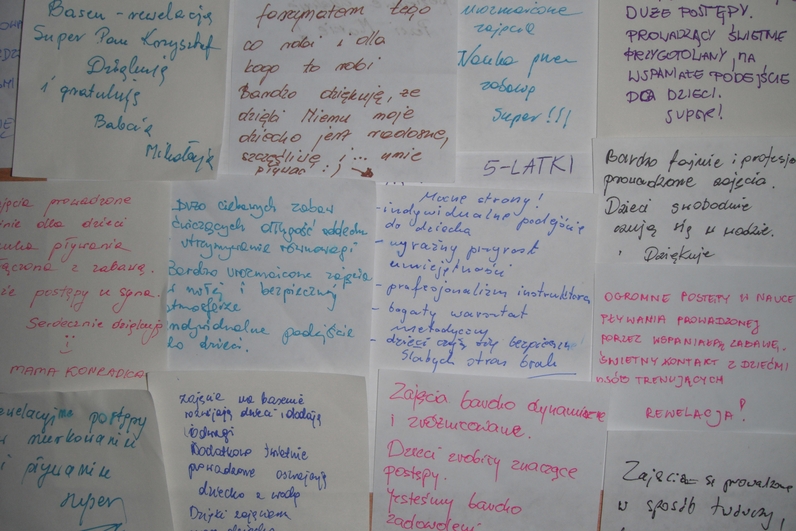 Basen - rewelacja
Super Pan Krzysztof
Dziękuję
i gratuluję
Babcia
Mikołajka
tego
co robi i dla
kogo to robi
Bardzo dziękuję, że
dzięki Niemu moje
dziecko jest radosne,
szczęśliwe i ... umie
pływać :)
urozmaicone
zajęcia
Nauka przez
zabawę
Super!!!
DUŻE POSTĘPY.
PROWADZĄCY ŚWIETNIE
PRZYGOTOWANY, MA
WSPANIAŁE PODEJŚCIE
DLA DZIECI.
SUPER!
5-LATKI
Bardzo fajnie i
prowadzone zajęcia.
Dzieci swobodnie
czują się w wodzie.
Dziękuję
prowadzone
dla dzieci
pływania
z zabawą.
postępy u syna.
Serdecznie dziękuję
MAMA KONRADKA
Dużo ciekawych zabaw
ćwiczących długość oddechu
utrzymywanie równowagi
Bardzo urozmaicone zajęcia
w miłej i bezpiecznej
atmosferze
indywidualne podejście
do dzieci.
Mocne strony!
- indywidualne podejście
do dziecka
- wyraźny przyrost
umiejętności
- profesjonalizm instruktora
- bogaty warsztat
metodyczny
- dzieci czują się bezpiecznie!
Słabych stron brak
OGROMNE POSTĘPY W NAUCE
PŁYWANIA PROWADZONEJ
POPRZEZ WSPANIAŁĄ ZABAWĘ.
ŚWIETNY KONTAKT Z DZIEĆMI
OSÓB TRENUJĄCYCH
REWELACJA!
postępy
w nurkowaniu
i pływaniu
super
zajęcia na basenie
rozwijają dzieci i dodają
odwagi
Dodatkowo świetnie
prowadzone oswajają
dziecko z wodą
Dzięki zajęciom
Zajęcia bardzo dynamiczne
i zróżnicowane.
Dzieci zrobiły znaczące
postępy.
Jesteśmy bardzo
zadowoleni
Zajęcia są prowadzone
w sposób twórczy,